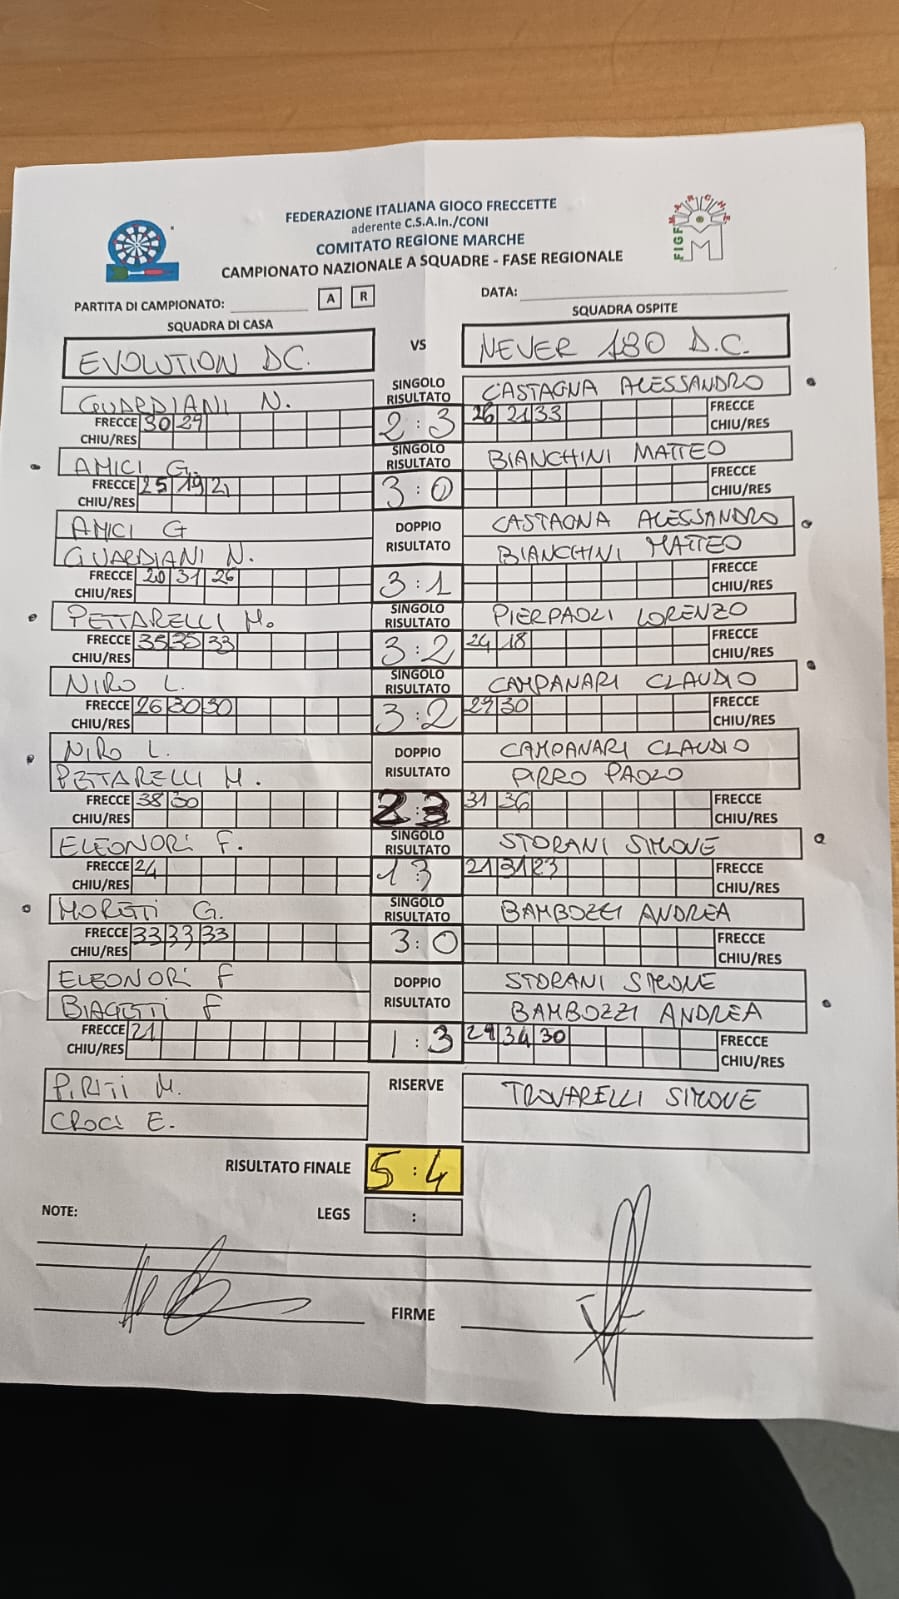 FEDERAZIONE ITALIANA GIOCO FRECCETTE
aderente C.S.A.In./CONI
COMITATO REGIONE MARCHE
CAMPIONATO NAZIONALE A SQUADRE - FASE REGIONALE
MARCHE
FIGF
M
PARTITA DI CAMPIONATO: A R DATA:
SQUADRA DI CASA SQUADRA OSPITE
EVOLUTION DC. VS NEVER 180 D.C.
GUARDIANI N. SINGOLO RISULTATO CASTAGNA ALESSANDRO
FRECCE 30 29 2:3 26 21 33 FRECCE
CHIU/RES CHIU/RES
AMICI G. SINGOLO RISULTATO BIANCHINI MATTEO
FRECCE 25 19 21 3:0 FRECCE
CHIU/RES CHIU/RES
AMICI G DOPPIO CASTAGNA ALESSANDRO
GUARDIANI N. RISULTATO BIANCHINI MATTEO
FRECCE 20 31 26 3:1 FRECCE
CHIU/RES CHIU/RES
PETTARELLI M. SINGOLO RISULTATO PIERPAOLI LORENZO
FRECCE 35 30 33 3:2 24 18 FRECCE
CHIU/RES CHIU/RES
NIRO L. SINGOLO RISULTATO CAMPANARI CLAUDIO
FRECCE 26 30 30 3:2 29 30 FRECCE
CHIU/RES CHIU/RES
NIRO L. DOPPIO CAMPANARI CLAUDIO
PETTARELLI M. RISULTATO PIRRO PAOLO
FRECCE 38 30 2:3 31 36 FRECCE
CHIU/RES CHIU/RES
ELEONORI F. SINGOLO RISULTATO STORANI SIMONE
FRECCE 24 1:3 21 31 23 FRECCE
CHIU/RES CHIU/RES
MORETTI G. SINGOLO RISULTATO BAMBOZZI ANDREA
FRECCE 33 33 33 3:0 FRECCE
CHIU/RES CHIU/RES
ELEONORI F DOPPIO STORANI SIMONE
BIAGETTI F RISULTATO BAMBOZZI ANDREA
FRECCE 21 1:3 29 34 30 FRECCE
CHIU/RES CHIU/RES
PIRITI M. RISERVE TROVARELLI SIMONE
CROCI E.
RISULTATO FINALE 5:4
NOTE: LEGS :
FIRME